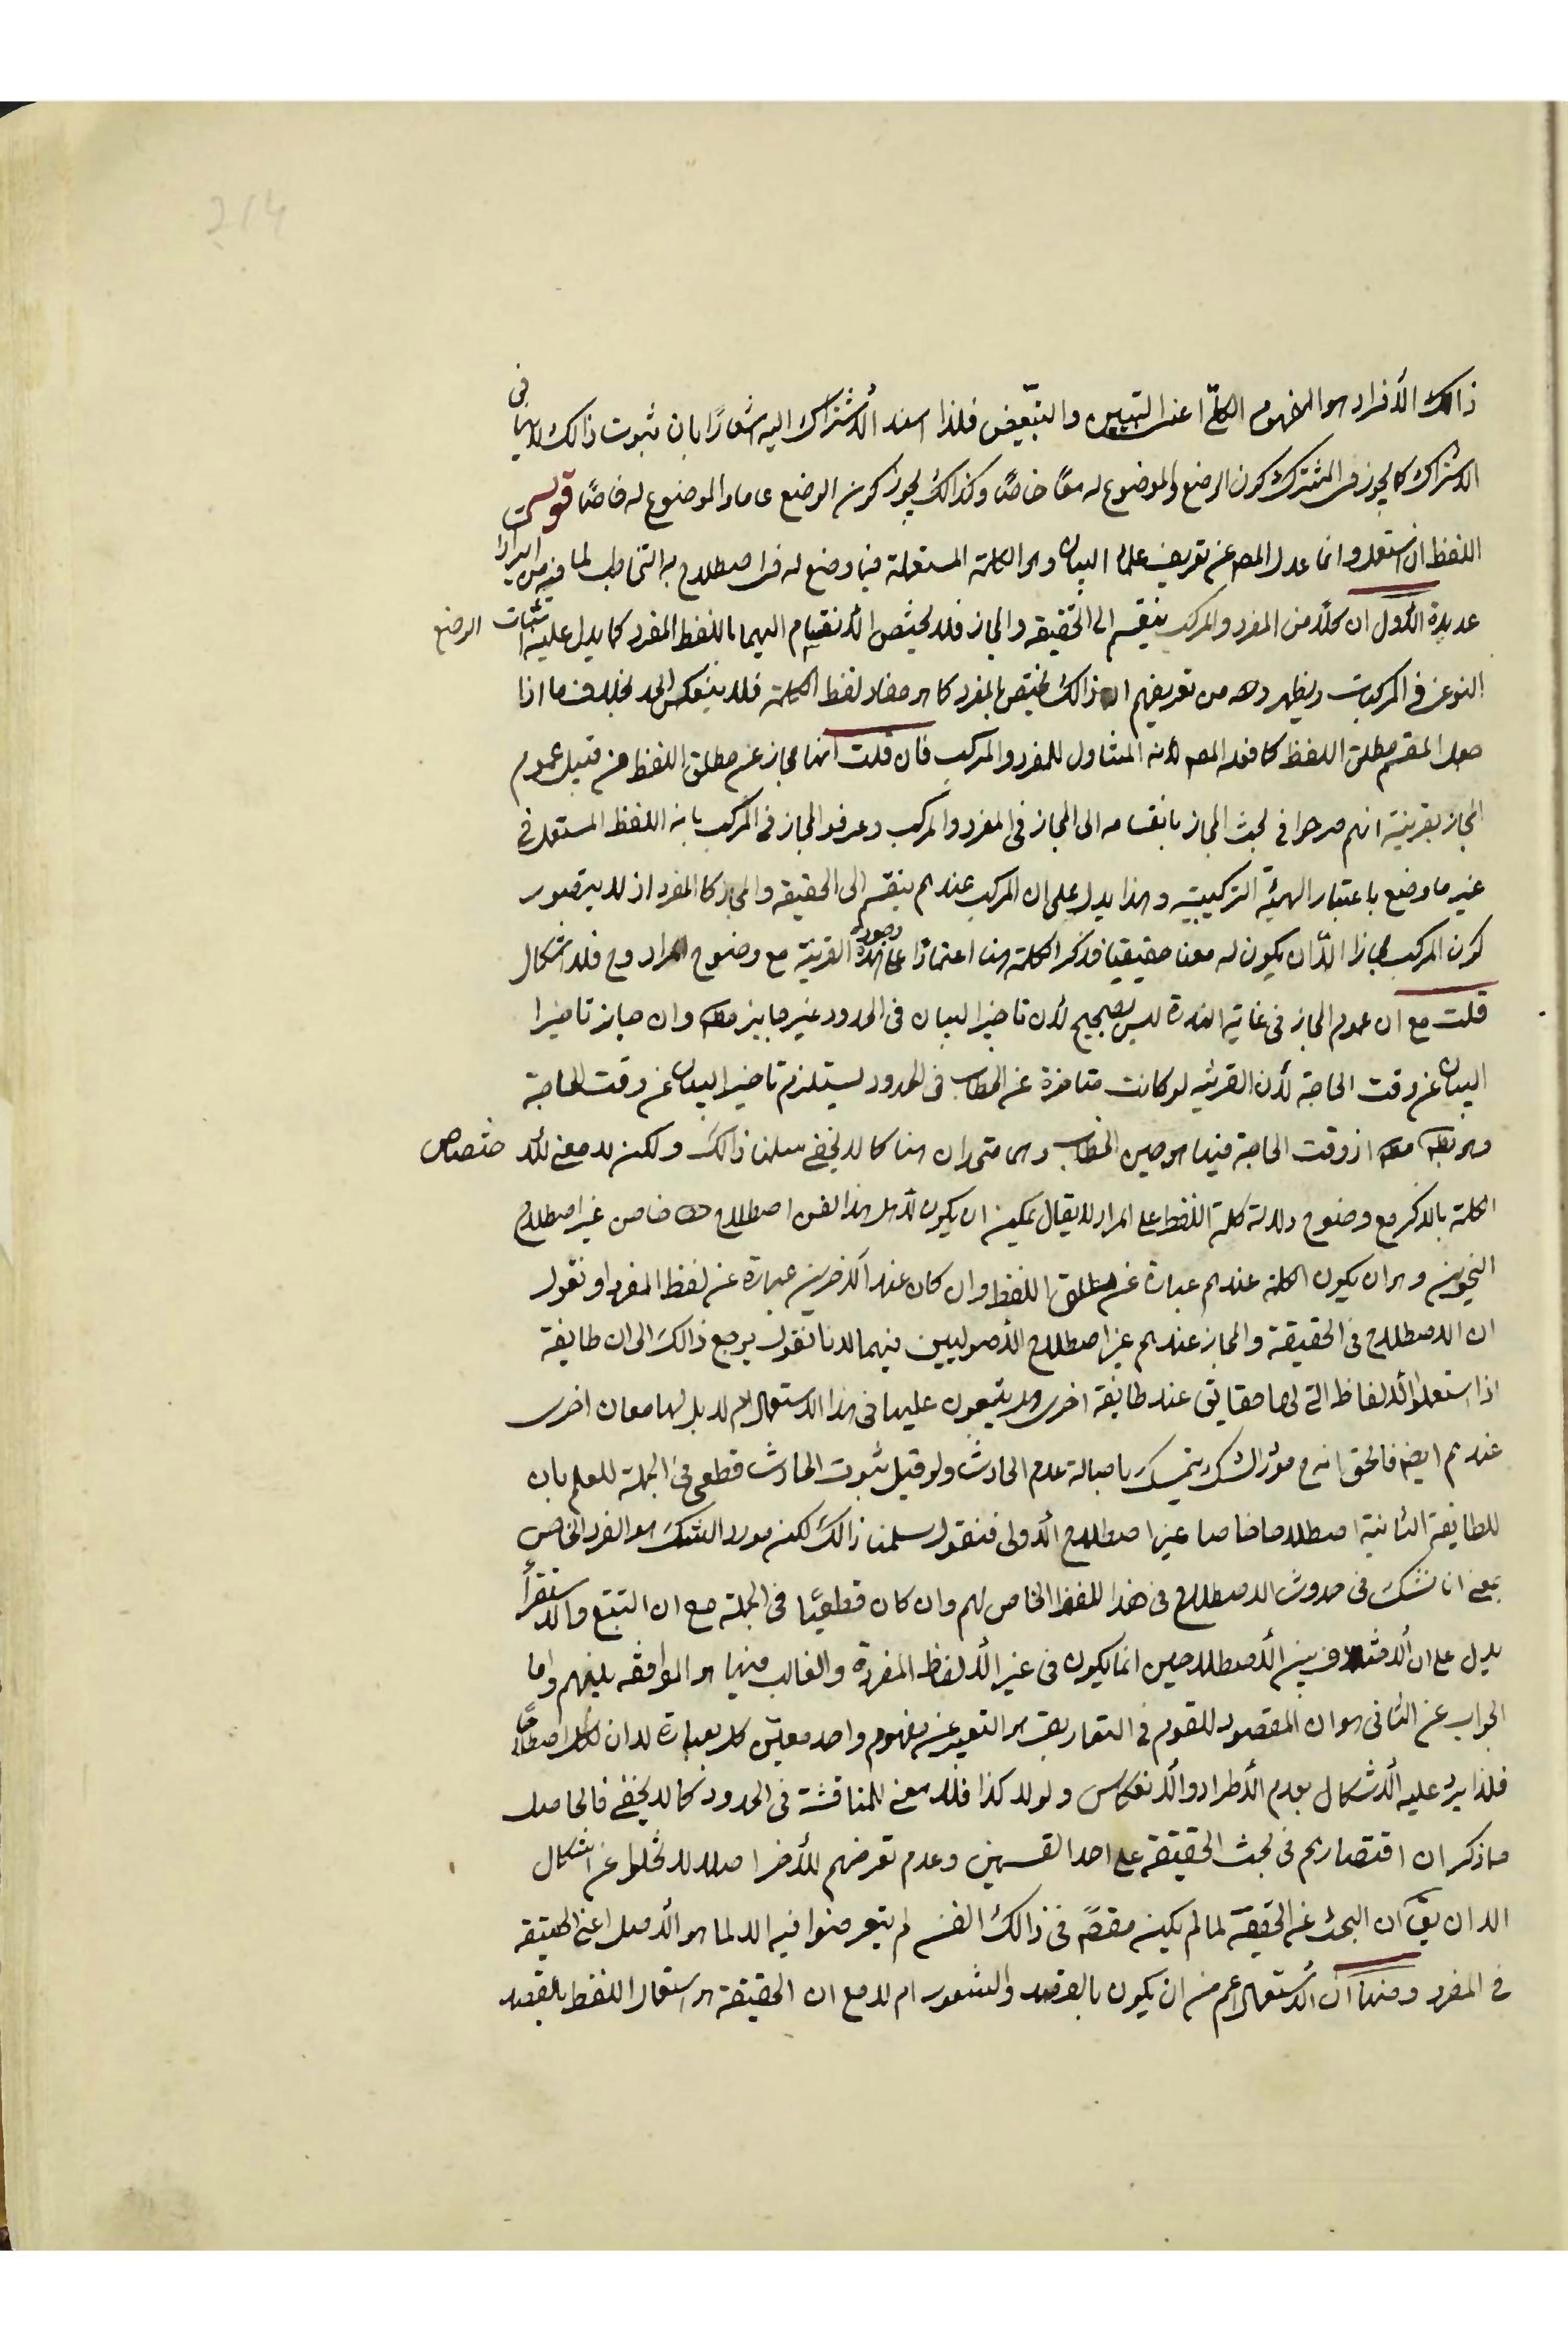 ذالك الأفراد هو المفهوم الكلّي اعنى التبيين والتبعيض فلذا اسند الأشتراك اليه اشعارًا بان ثبوت ذالك لا ينافى
الاشتراك كما يجوز فى المشترك كون الوضع والموضوع له معًا خاصًا وكذالك يجوز كون الوضع عاما والموضوع له خاصًا قوله
اللفظ ان استعمل وانما عدل المصـ عن تعريف علماء البيان وهو الكلمة المستعملة فيما وضع له فى اصطلاح به التخاطب لما فيه من ايرادات
عديدة الأول ان كلًا من المفرد والمركب ينقسم الى الحقيقة والمجاز فلا يختص الأنقسام اليهما باللفظ المفرد كما يدل عليه اثبات الوضع
النوعى فى المركبات ويظهر من تعريفهم ان ذالك يختص بالمفرد كما هو مفاد لفظ الكلمة فلا ينعكس الحد بخلاف ما اذا
جعل المقسم مطلق اللفظ كما فعله المصـ لأنه المتناول للمفرد والمركب فان قلت انها مجاز عن مطلق اللفظ من قبيل عموم
المجاز بقرينة انهم صرحوا فى بحث المجاز بانقسامه الى المجاز فى المفرد والمركب وعرفوا المجاز فى المركب بانه اللفظ المستعمل فى
غير ما وضع باعتبار الهيئة التركيبية وهذا يدل على ان المركب عندهم ينقسم الى الحقيقة والمجاز كالمفرد اذ لا يتصور
كون المركب مجازا الّا ان يكون له معنا حقيقيا فذكر الكلمة هنا اعتمادًا على وجود هذه القرينة مع وضوح المراد وح فلا اشكال
قلت مع ان عموم المجاز فى غاية الندرة ليس بصحيح لأن تاخير البيان فى الحدود غير جايز مطـ وان جاز تاخير
البيان عن وقت الحاجة لأن القرينه لو كانت متاخرة عن الخطاب فى الحدود يستلزم تاخير البيان عن وقت الحاجة
وهو بطـ مطـ اذ وقت الحاجة فيها هو حين الخطاب وهما متحدان هنا كما لا يخفى سلمنا ذالك ولكن لا معنى لأختصاص
الكلمة بالذكر مع وضوح دلالة كلمة اللفظ على المراد لا يقال يمكن ان يكون لأهل هذا الفن اصطلاح خاص غير اصطلاح
النحويين وهو ان يكون الكلمة عندهم عبارة عن مطلق اللفظ وان كان عند الآخرين عبارة عن لفظ المفرد او نقول
ان الاصطلاح فى الحقيقة والمجاز عندهم غير اصطلاح الأصوليين فيهما لانا نقول يرجع ذالك الى ان طايفة
اذا استعملوا الألفاظ التى لها حقايق عند طائفة اخرى هل يتبعون عليها فى هذا الاستعمال ام لا بل لها معان اخرى
عندهم ايضـ فالحق انه فى مورد الشك يتمسك باصالة عدم الحادث ولو قيل ثبوت الحادث قطعى فى الجملة للعلم بان
للطايفة الثانية اصطلاحا خاصا غير اصطلاح الأولى فنقول سلمنا ذالك لكن مورد الشك هو الفرد الخاص
بمعنى انا نشك فى حدوث الاصطلاح فى هذا اللفظ الخاص لهم وان كان قطعيًا فى الجملة مع ان التتبع والاستقرأ
يدل على ان الأختلاف بين الأصطلاحين انما يكون فى غير الألفاظ المفردة والغالب فيها هو الموافقه بينهم واما
الجواب عن الثانى هو ان المقصود للقوم فى التعاريف هو التعبير عن مفهوم واحد معيّن كل بعبارة لا ان لكل اصطلاحًا
فلذا يرد عليه الأشكال بعدم الأطراد والأنعكاس ولولا كذا فلا معنى للمناقشة فى الحدود كما لا يخفى فالحاصل
مما ذكر ان اقتصارهم فى بحث الحقيقة على احد القسمين وعدم تعرضهم للأخر اصلا لا يخلوا عن اشكال
الا ان يقـ ان البحث عن الحقيقة لما لم يكن مقصدًا فى ذالك الفن لم يتعرضوا فيه الا لما هو الأصل اعنى الحقيقه
فى المفرد ومنها ان الأستعمال اعم من ان يكون بالقصد والشعور ام لا مع ان الحقيقة هو استعمال اللفظ بالقصد